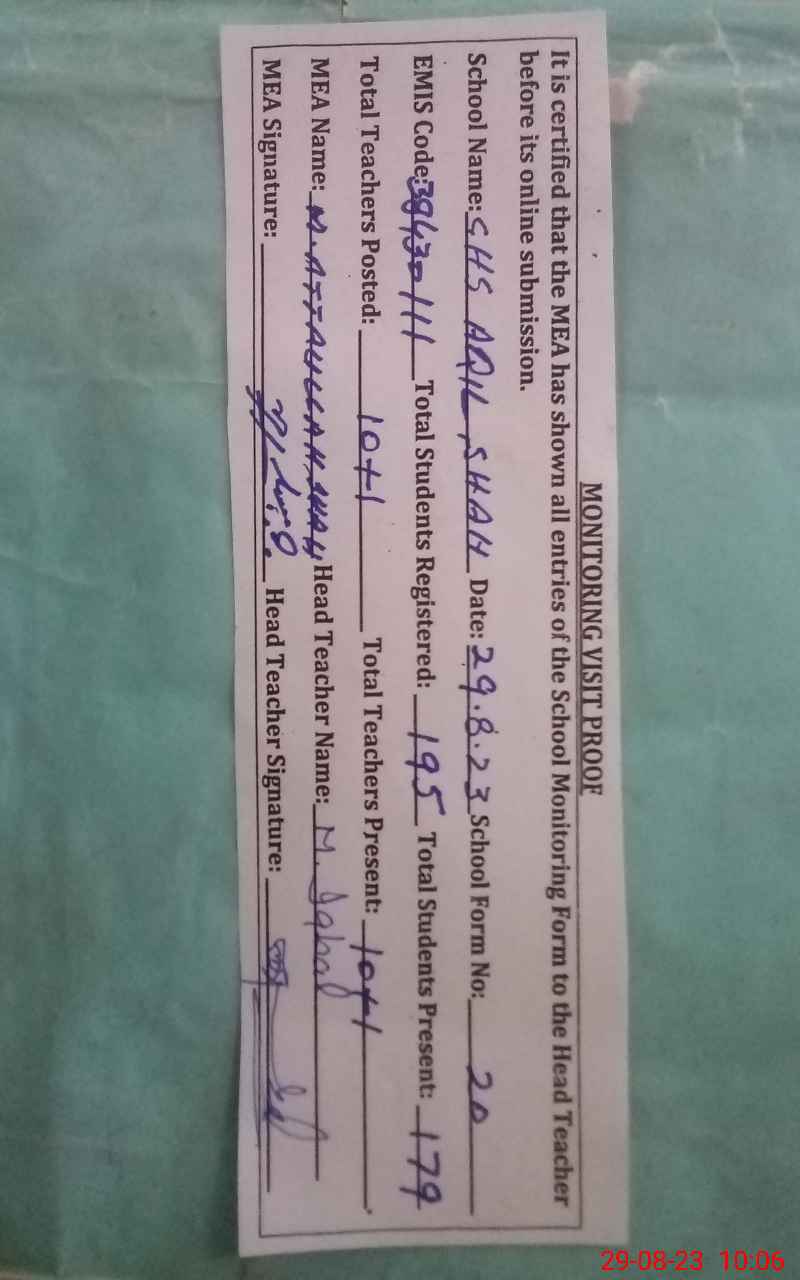 MONITORING VISIT PROOF
It is certified that the MEA has shown all entries of the School Monitoring Form to the Head Teacher
before its online submission.
School Name: GHS AQIL SHAH Date: 29.8.23 School Form No: 20
EMIS Code: 38430111 Total Students Registered: 195 Total Students Present: 179
Total Teachers Posted: 10+1 Total Teachers Present: 10+1
MEA Name: M. ATTAULLAH SHAH Head Teacher Name: M. Iqbal
MEA Signature: Head Teacher Signature:
29-08-23 10:06